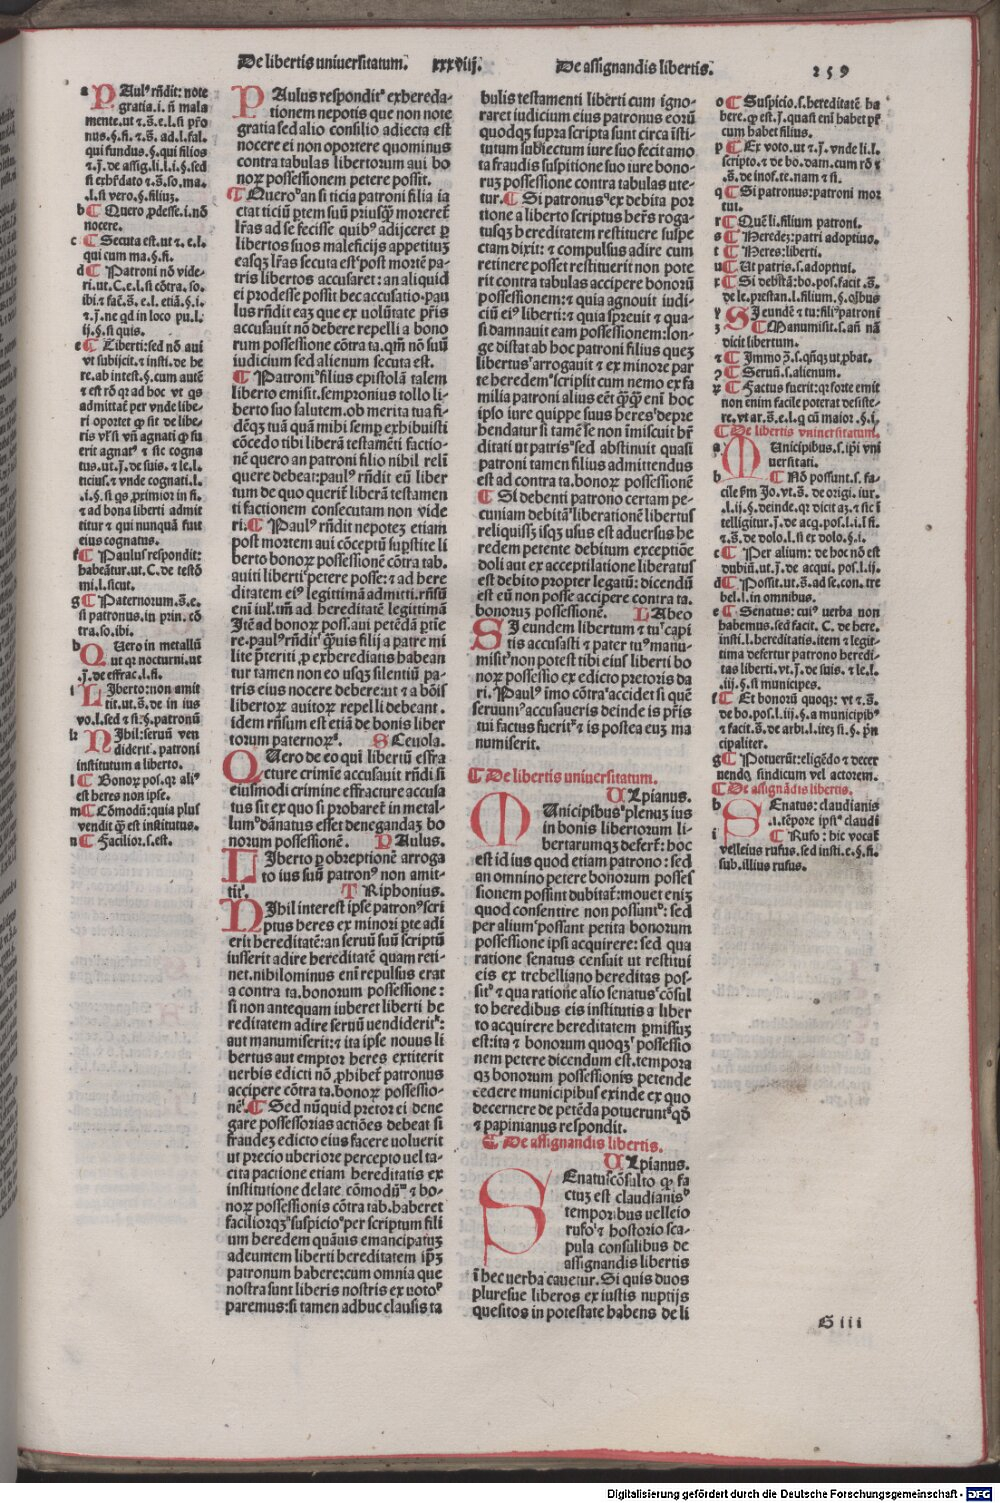 De libertis uniuersitatum. xxxviij. De assignandis libertis. 259
a Paulꝰ rñdit: note
gratia.i. ñ mala
mente.ut ⁊.s̄.e.l.si pr̄o
nus.§.fi.⁊.s̄.ad.l.fal.
qui fundus.§.qui filios
⁊.j̄.de assig.li.l.i.§.sed
si exhr̄dato ⁊.s̄.so.ma.
.l.si vero.§.filiuȝ.
b ¶ Quero ꝓdesse.i.nō
nocere.
c ¶ Secuta est.ut ⁊.e.l.
qui cum ma.§.fi.
d ¶ Patroni nō vide-
ri.ut.C.e.l.si cōtra.so.
ibi.⁊ fac̄.s̄.e.l.etiā.§.i.
⁊.j̄.ne qd in loco pu.l.
ij.§.si quis.
e ¶ Liberti: sed nō aui
vt subijcit.⁊ insti.de he
re.ab intest.§.cum autē
⁊ est rō qr ad hoc vt qs
admittat̄ per vnde libe-
ri oportet ꝙ sit de libe-
ris vl̄ si vñ agnati ꝙ si
erit agnatꝰ ⁊ sic cogna
tus.ut.j̄.de suis.⁊ le.l.
ticius.⁊ vnde cognati.l.
.i.§.si qs ꝓximior in fi.
⁊ ad bona liberti admit
titur ⁊ qui nunquā fuit
eius cognatus.
f ¶ Paulus respondit:
habeātur.ut.C.de testō
mi.l.sicut.
g ¶ Paternorum.s̄.e.
si patronus.in prin.cō
tra.so.ibi.
h Quero in metallū
ut qr nocturni.ut
.j̄.de effrac.l.fi.
i Liberto: non amit
tit.ut.s̄.de in ius
vo.l.sed ⁊ si:§.patronū
k Nihil: seruū ven
diderit.patroni
institutum a liberto.
l ¶ Bonoꝝ pos.qr aliꝰ
est heres non ipse.
m ¶ Cōmodū: quia plus
vendit qꝫ est institutus.
n ¶ Facilior.s.est.
Paulus responditꝰ exhereda-
tionem nepotis que non note
gratia sed alio consilio adiecta est
nocere ei non oportere quominus
contra tabulas libertorum aui bo
noꝝ possessionem petere possit.
¶ Queroᵇ an si ticia patroni filia ia
ctat ticiū ptem suū priusqꝫ moreret̄
lr̄as ad se fecisse quibꝰ adijceret ꝑ
libertos suos maleficijs appetituȝ
easqȝ lr̄as secuta estᶜ post mortē pa-
tris libertos accusaret: an aliquid
ei prodesse possit hec accusatio.pau
lus rñdit eaȝ que ex volūtate pr̄is
accusauit nō debere repelli a bono
rum possessione cōtra ta.qm̄ nō suū
iudicium sed alienum secuta est.
¶ Patroniᵈ filius epistolā talem
liberto emisit.sempronius tollo li-
berto suo salutem.ob merita tua fi-
dēqȝ tuā quā mihi semꝑ exhibuisti
cōcedo tibi liberā testamēti factio-
nē quero an patroni filio nihil relī
quere debeat: paulꝰ rñdit eū liber
tum de quo querit̄ liberā testamen
ti factionem consecutam non vide
ri: ¶ Paulꝰ rñdit nepoteȝ etiam
post mortem aui cōceptū supstite li
berto bonoꝝ possessionē cōtra tab.
auiti libertiᵉ petere posse: ⁊ ad here
ditatem eiꝰ legittimā admitti.rñsū
eni iul.tm̄ ad hereditatē legittimā
Itē ad bonoꝝ poss.aui petēdā ptīe
re.paulꝰ rñditᶠ qꝫuis filij a patre mi
lite p̄teriti ꝓ exherediatis habean
tur tamen non eo usqȝ silentiū pa-
tris eius nocere debere: ut ⁊ a bōis
libertoꝝ auitoꝝ repelli debeant.
idem rñsum est etiā de bonis liber
torum paternoꝝᵍ. Sceuola.
Quero de eo qui libertū effra
cture crimīe accusauit rñdi si
eiusmodi crimine effracture accusa
tus sit ex quo si probaret̄ in metal-
lumʰ dānatus esset denegandaȝ bo
norum possessionē. Paulus.
Liberto ꝑ obreptionē arroga
to ius suū patronꝰ non amit-
titⁱ. Triphonius.
Nihil interest ipse patronꝰ scri
ptus heres ex minori p̄te adi
erit hereditatē: an seruū suū scriptū
iusserit adire hereditatē quam reti-
net.nihilominus eni repulsus erat
a contra ta.bonorum possessione:
si non antequam iuberet liberti he
reditatem adire seruū uendiderit:
aut manumiserit: ⁊ ita ipse nouus li
bertus aut emptor heres extiterit
uerbis edicti nō ꝓhibet̄ patronus
accipere cōtra ta.bonoꝝ possessio-
nē. ¶ Sed nūquid pretor ei dene
gare possessorias actiōes debeat si
fraudeȝ edicto eius facere uoluerit
ut precio uberiore percepto uel ta-
cita pactione etiam hereditatis ex
institutione delate cōmodūᵐ ⁊ bo-
noꝝ possessionis cōtra tab.haberet
faciliorqȝⁿ suspicioᵒ per scriptum fili
um heredem quāuis emancipatuȝ
adeuntem liberti hereditatem ip̄ȝ
patronum habere: cum omnia que
nostra sunt liberis nostris ex uotoᵖ
paremus: si tamen adhuc clausis ta
bulis testamenti liberti cum igno-
raret iudicium eius patronus eorū
quodqȝ supra scripta sunt circa īsti-
tutum subiectum iure suo fecit amo
ta fraudis suspitione suo iure bono-
ruȝ possessione contra tabulas ute-
tur. ¶ Si patronus ex debita por
tione a liberto scriptus her̄s roga-
tusqȝ hereditatem restituere suspe
ctam dixit: ⁊ compulsus adire cum
retinere posset restituerit non pote
rit contra tabulas accipere bonorū
possessionem: ⁊ quia agnouit iudi-
ciū eiꝰ liberti: ⁊ quia spreuit ⁊ qua-
si damnauit eam possessionem: lon-
ge distat ab hoc patroni filius queȝ
libertus arrogauit ⁊ ex minore par
te heredem scripsit cum nemo ex fa
milia patroni alius eēt qꝫqꝫ eni hoc
ipso iure quippe suus heres depre
hendatur si tamē se non imiscuit hr̄
ditati ut patris sed abstinuit quasi
patroni tamen filius admittendus
est ad contra ta.bonoꝝ possessionē
¶ Si debenti patrono certam pe-
cuniam debitā liberationē libertus
reliquissȝ isqȝ usus est aduersus he
redem petente debitum exceptiōe
doli aut ex acceptilatione liberatus
est debito propter legatū: dicendū
est eū non posse accipere contra ta.
bonoruȝ possessionē. Labeo
Si eundem libertum ⁊ tu capi
tis accusasti ⁊ pater tuꝰ manu-
misit non potest tibi eiꝰ liberti bo
noꝝ possessio ex edicto pretoris da
ri. Paulꝰ imo cōtra accidet si quē
seruum accusaueris deinde is pr̄is
tui factus fuerit ⁊ is postea euȝ ma
numiserit.
¶ De libertis uniuersitatum.
Ulpianus.
Municipibus plenuȝ ius
in bonis libertorum li-
bertarumqȝ defert̄: hoc
est id ius quod etiam patrono: sed
an omnino petere bonorum posses
sionem possint dubitat̄: mouet eniȝ
quod consentire non possuntᵇ: sed
per aliumᶜ possunt petita bonorum
possessione ipsi acquirere: sed qua
ratione senatus censuit ut restitui
eis ex trebelliano hereditas pos-
sitᵈ ⁊ qua ratione alio senatusᵉ cōsul
to heredibus eis institutis a liber
to acquirere hereditatem ꝑmissuȝ
est: ita ⁊ bonorum quoqȝᶠ possessio
nem petere dicendum est.tempora
qȝ bonorum possessionis petende
cedere municipibus exinde ex quo
decernere de petēda potueruntᵍ qđ
⁊ papinianus respondit.
¶ De assignandis libertis.
Ulpianus.
Senatuscōsulto ꝙ fa
ctuȝ est claudianisʰ
temporibus velleio
rufoⁱ ⁊ hostorio sca-
pula consulibus de
assignandis libertis
ī hec uerba cauetur. Si quis duos
pluresue liberos ex iustis nuptijs
quesitos in potestate habens de li
o ¶ Suspicio.s.hereditatē ha
bere.ꝙ est.j̄.quasi eni habet pr̄
cum habet filius.
p ¶ Ex voto.ut ⁊.j̄.vnde li.l.
scripto.⁊ de bo.dam.cum rō ⁊
.s̄.de inof.te.nam ⁊ si.
q ¶ Si patronus: patroni mor
tui.
r ¶ Quē li.filium patroni.
s ¶ Heredeȝ: patri adoptiuo.
t ¶ Heres: liberti.
u ¶ Ut patris.s.adoptiui.
x ¶ Si debētā: bo.pos.facit.s̄.
de le.prestan.l.filium.§.oībus
y Si eundē ⁊ tu: filiꝰ patroni
z ¶ Manumisit.s.añ nā
dicit libertum.
⁊ ¶ Immo ꝫ.s.qñqȝ ut ꝓbat.
ꝯ ¶ Seruū.s.alienum.
ꝝ ¶ Factus fuerit: qr forte emit
non enim facile poterat desiste-
re.vt ar.s̄.e.l.q cū maior.§.i.
¶ De libertis vniuersitatum.
a Municipibus.s.ip̄i vni
uersitati.
b ¶ Nō possunt.s.fa-
cile fm̄ Jo.vt.s̄.de origi.iur.
.l.ij.§.deinde.qr dicit aȝ.⁊ sic ī
telligitur.j̄.de acq.pos.l.i.ī fi.
⁊.s̄.de dolo.l.si ex dolo.§.i.
c ¶ Per alium: de hoc nō est
dubiū.ut.j̄.de acqui.pos.l.ij.
d ¶ Possit.ut.s̄.ad se.con.tre
bel.l.in omnibus.
e ¶ Senatus: cuiꝰ uerba non
habemus.sed facit.C.de here.
insti.l.hereditatis.item ⁊ legit-
tima defertur patrono heredi-
tas liberti.vt.j̄.de suis.⁊ le.l.
.iij.§.si municipes.
f ¶ Et bonorū quoqȝ: vt ⁊.s̄.
de bo.pos.l.iij.§.a municipibꝰ
⁊ facit.s̄.de arbi.l.iteȝ si.§.p̄n
cipaliter.
g ¶ Potuerūt: eligēdo ⁊ decer
nendo sindicum vel actorem.
¶ De assignādis libertis.
h Senatus: claudianis
.i.tēpore ipsiꝰ claudi
i ¶ Rufo: hic vocat̄
velleius rufus.sed insti.e.§.fi.
sub.illius rufus.
G iii
Digitalisierung gefördert durch die Deutsche Forschungsgemeinschaft - DFG